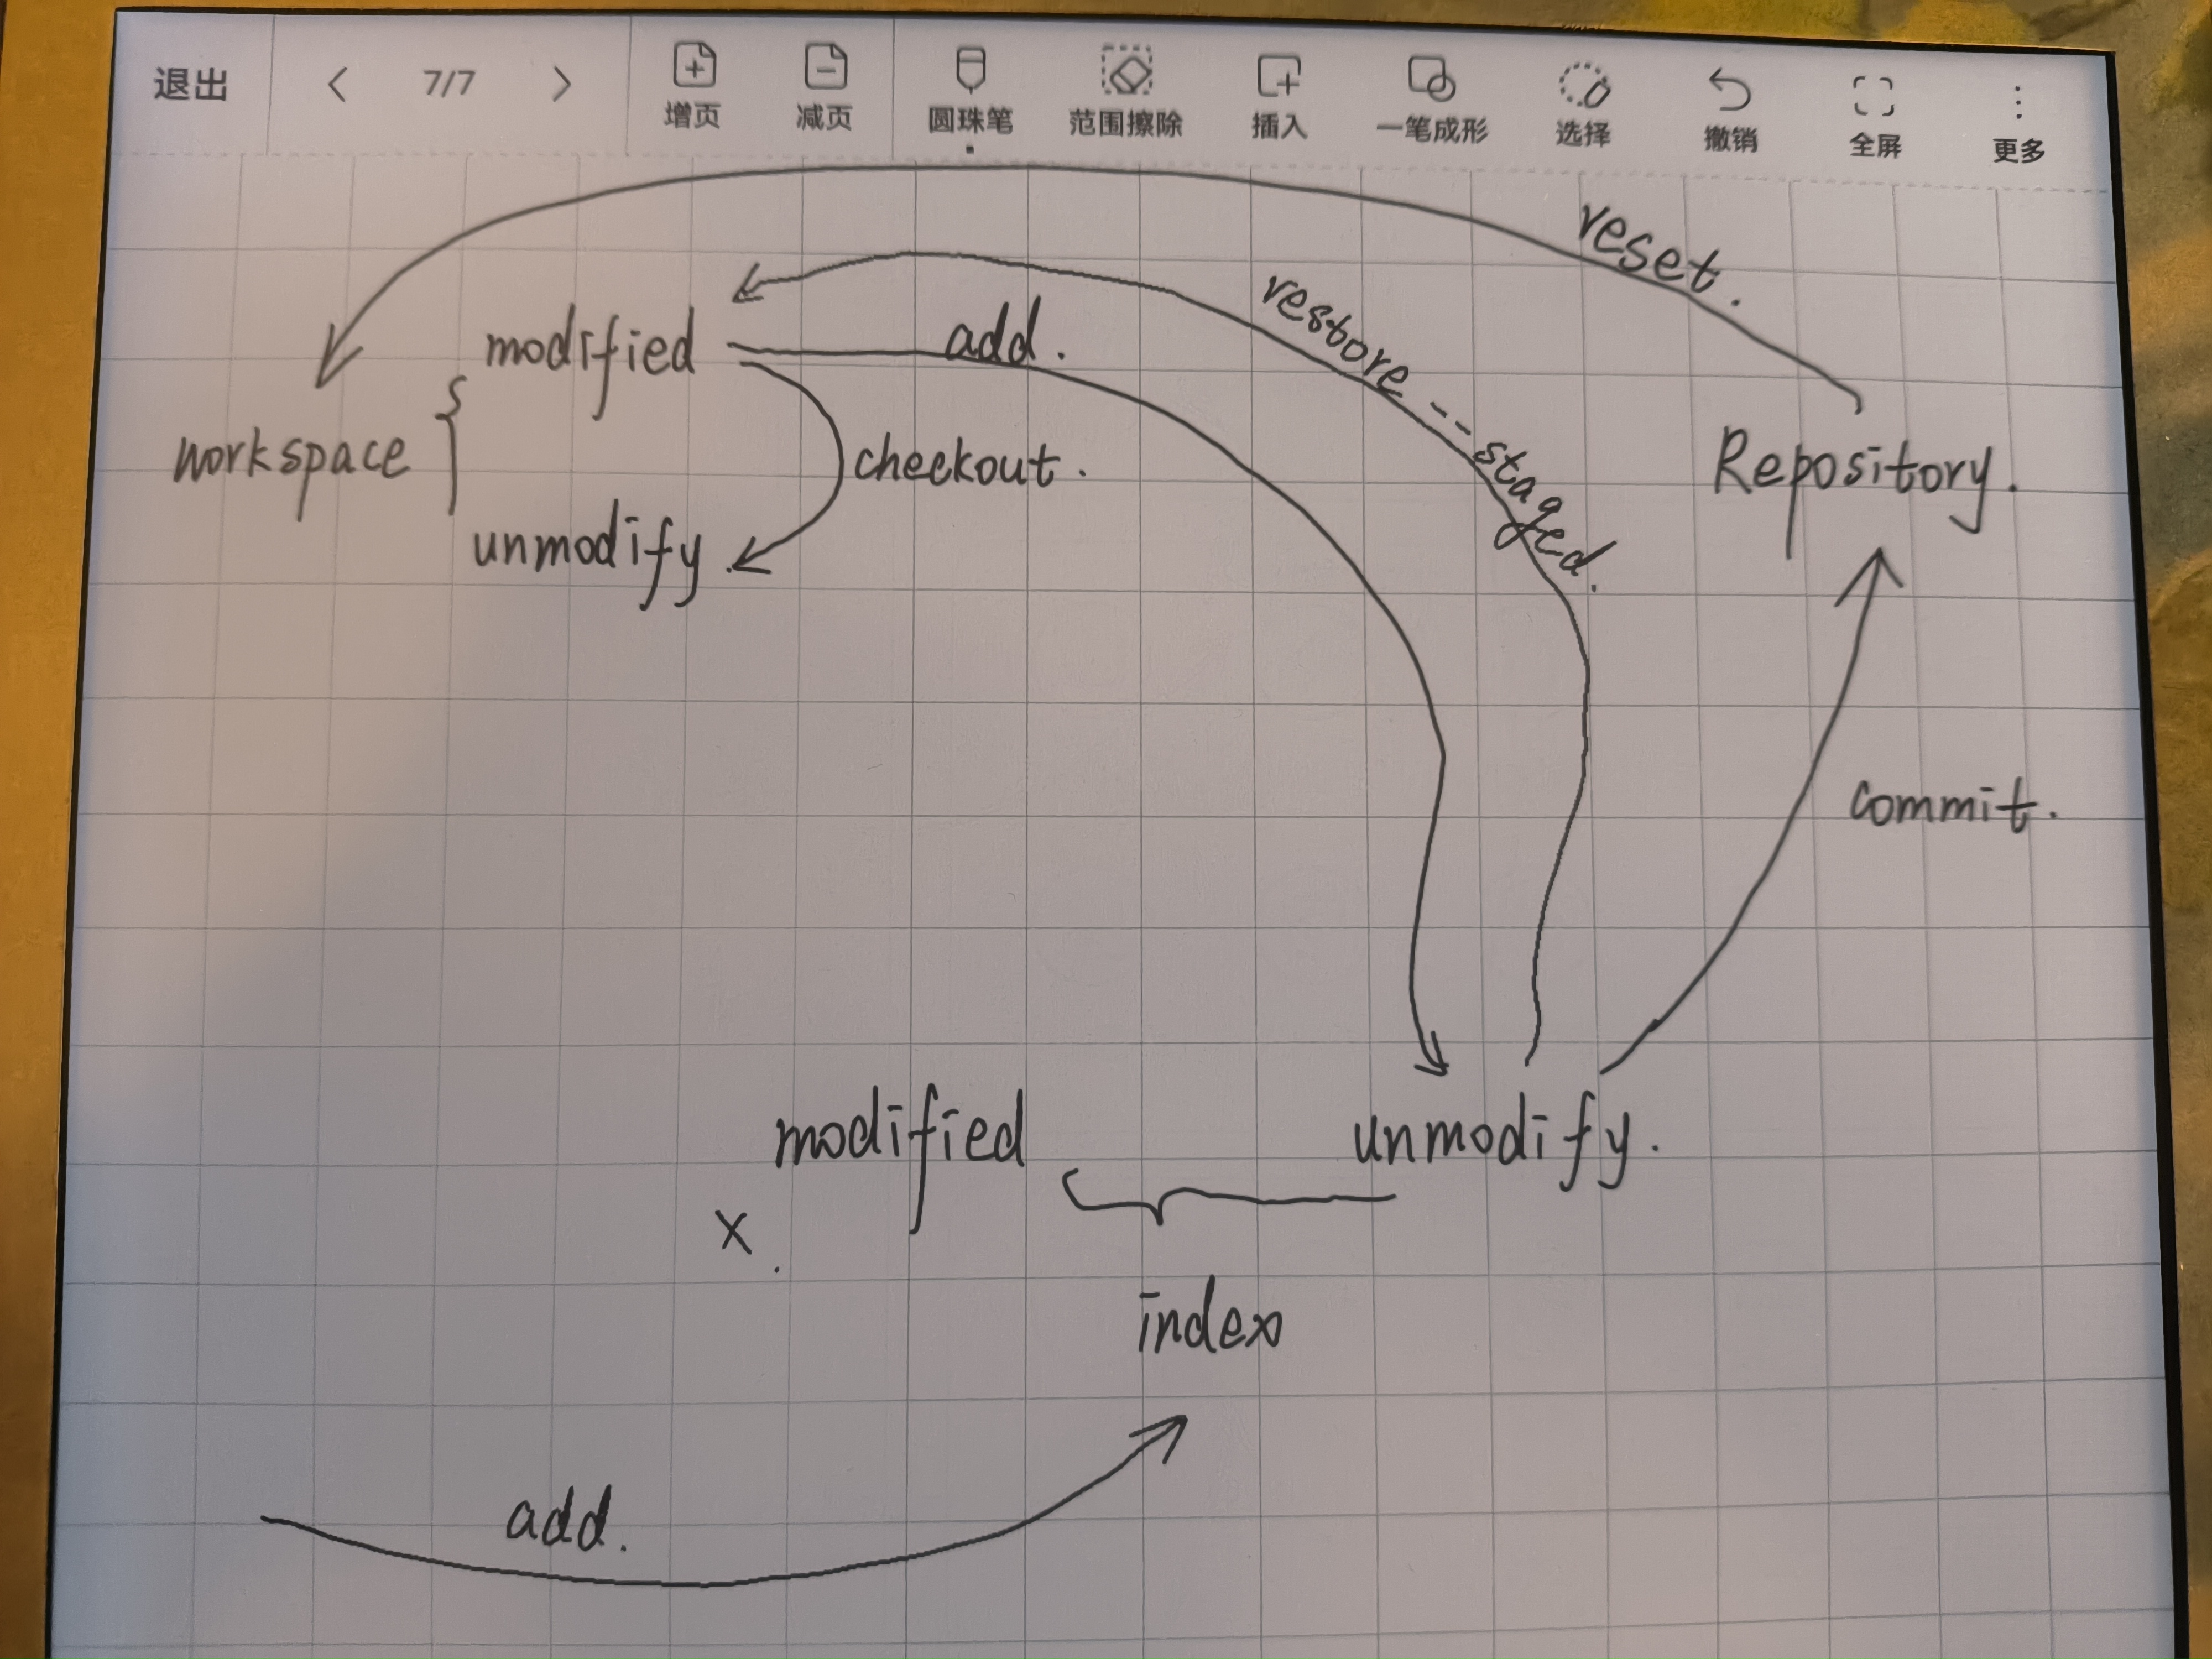 退出
7/7
增页
减页
圆珠笔
范围擦除
插入
一笔成形
选择
撤销
全屏
更多
reset.
restore --staged.
modified
add.
workspace
checkout.
Repository.
unmodify.
commit.
modified
unmodify.
x.
index
add.